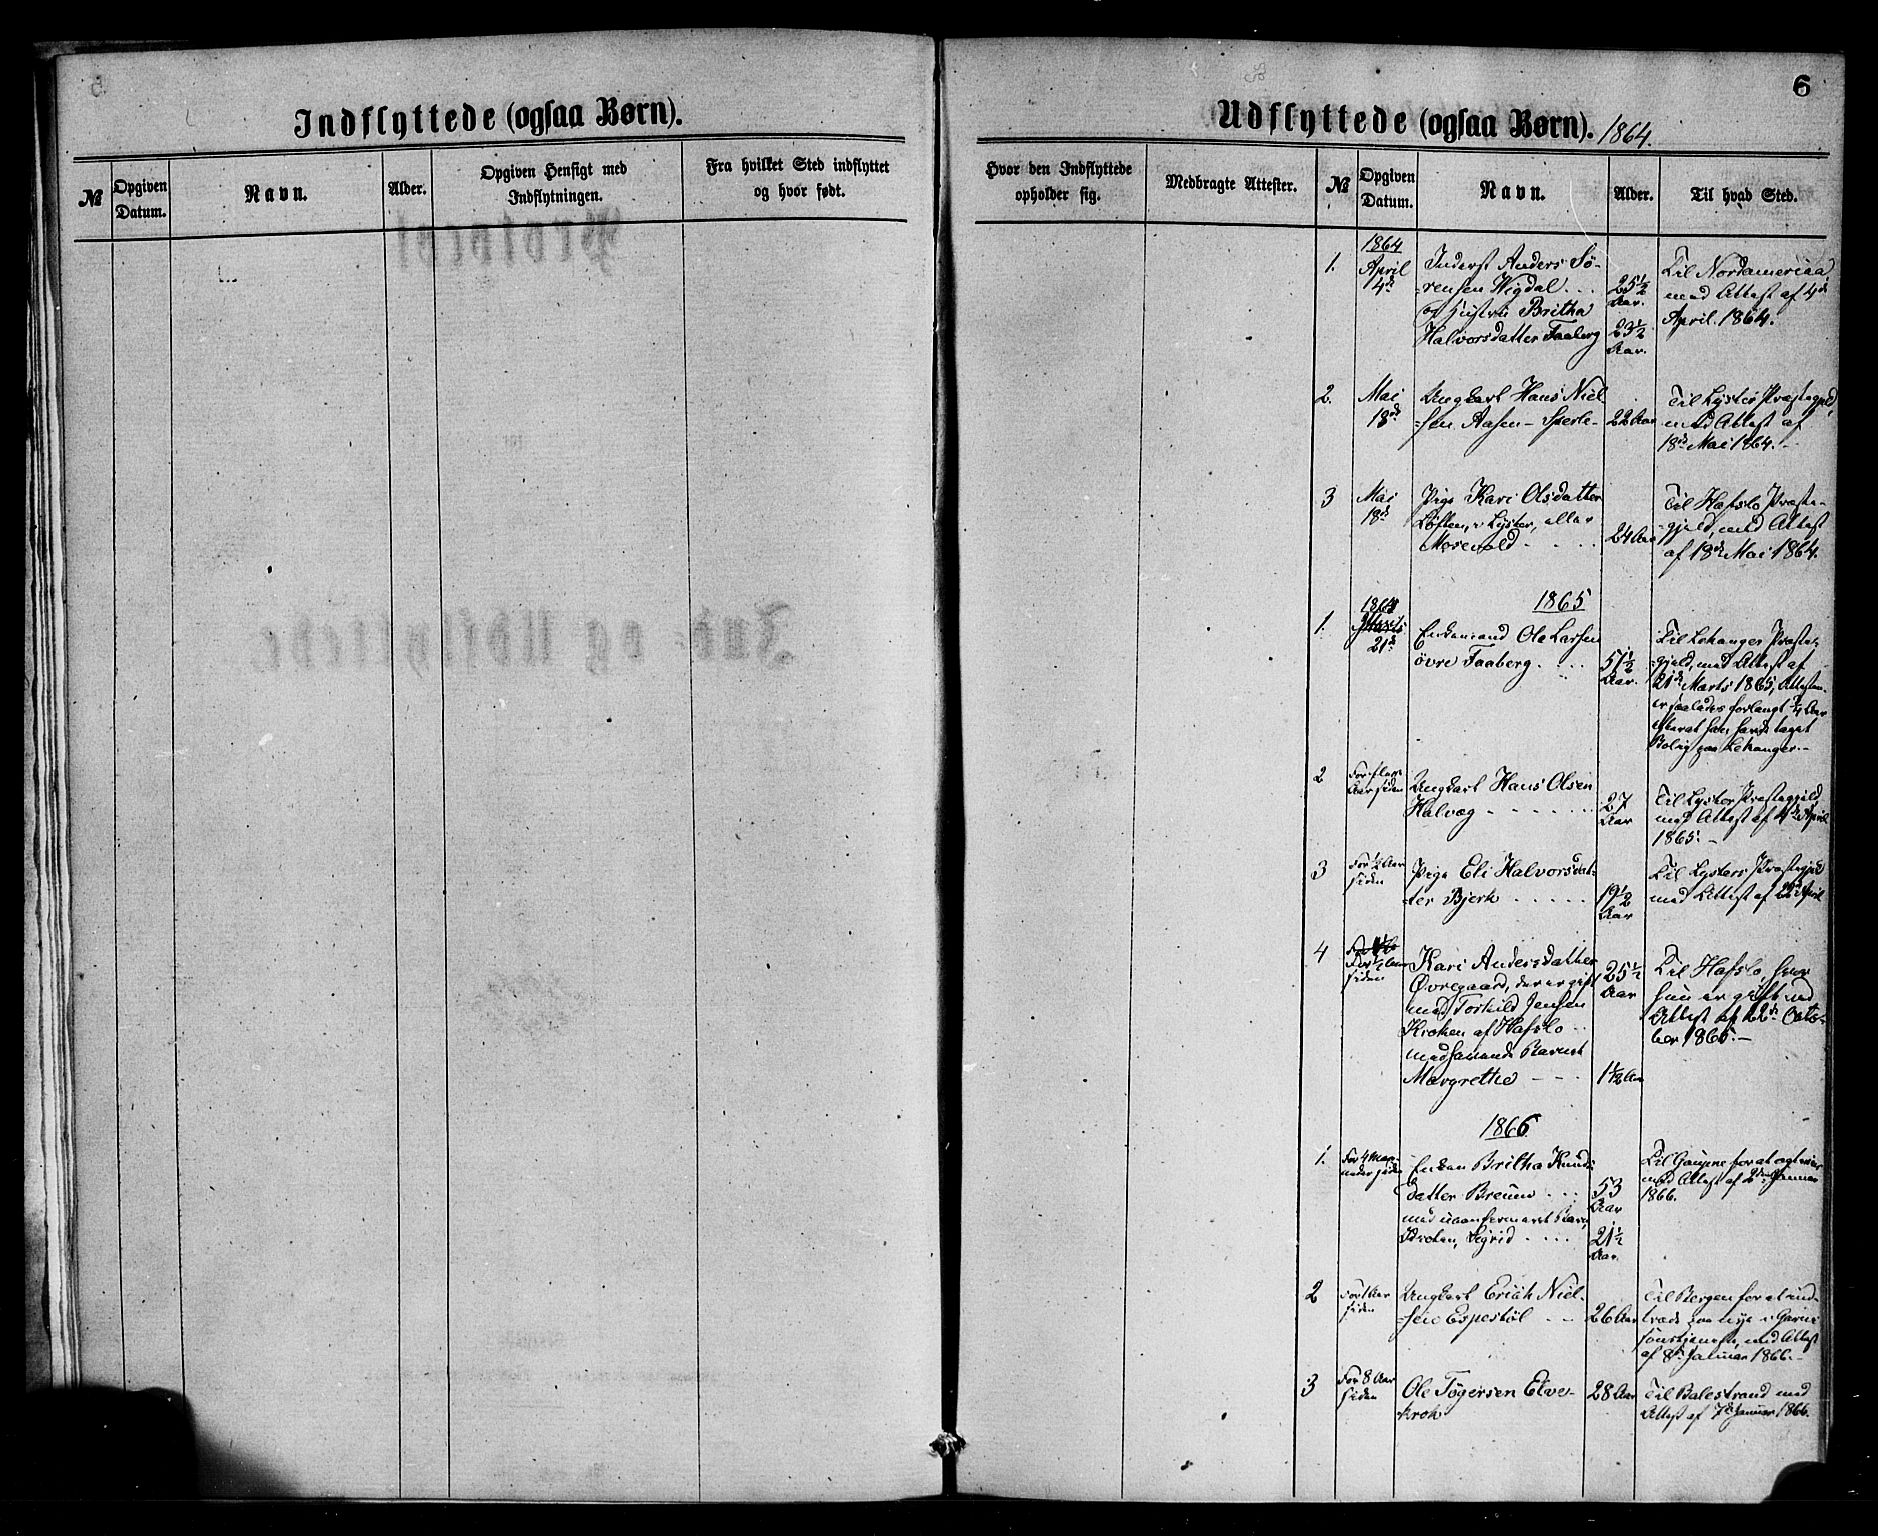 Indflyttede (ogsaa Børn).
№
Opgiven Datum.
Navn.
Alder.
Opgiven Hensigt med Indflytningen.
Fra hvilket Sted indflyttet og hvor født.
6
Udflyttede (ogsaa Børn). 1864.
Hvor den Indflyttede opholder sig.
Medbragte Attester.
№
Opgiven Datum.
Navn.
Alder.
Til hvad Sted.
1864
1. April 4de
Inderst Anders Sö-
rensen Wigdal . . . 25½ Aar.
og Hustru Britha
Halvorsdatter Faaberg 23½ Aar.
Til Nordamerica
med Attest af 4de
April 1864.
2. Mai 18de
Ungkarl Hans Niel
sen Aasen - Sperle- 22 Aar
Til Lyster Præstegjeld,
med Attest af
18de Mai 1864. -
3 Mai 18de
Pige Kari Olsdatter
Løften, i Lyster, eller
Morevold . . . . 24 Aar
Til Hafslo Præste-
gjeld, med Attest
af 18de Mai 1864.
1865
1. 21de
Enkemand Ole Larsen
övre Faaberg. . . . 51½ Aar.
Til Lekanger Præste-
gjeld, med Attest af
21de Marts 1865, Attesten
er saaledes forlangt ¼ Aar
efterat han havde taget
Bolig paa Lekanger. -
2 For flere Aar siden
Ungkarl Hans Olsen
Halvæg - - - - - 27 Aar
Til Lyster Præstegjeld,
med Attest af 4de April
1865. -
3 For ½ Aar siden
Pige Eli Halvorsdat-
ter Bjerk . . . . . 19½ Aar
Til Lysters Præstegjeld
med Attest af April
4 For ½ Aar siden
Kari Andersdatter 25½ Aar
Øvregaard, der er gift
med Torkild Jensen
Kroken af Hafslo . .
medhavende Barnet
Margrethe - - - 1½ Aar
Til Hafslo, hvor
hun er gift med
Attest af 22de Octo-
ber 1865. -
1866
1. For 4 Maa-
neder siden
Enken Britha Knuds
datter Breum . . . 53 Aar
med uconfirmeret Barn
Kroken, Sigrid . . . . 21½ Aar.
Til Gaupne for at
med Attest af 2den Januar
1866.
2 For 1 Aar siden
Ungkarl Erich Niel-
sen Espestöl - - 26 Aar
Til Bergen for at ind-
træde paa nye i Garni
sonstjeneste, med Attest
af 8de Januar 1866. -
3 For 8 Aar siden
Ole Tögersen Elve-
krok 28 Aar
Til Balestrand med
Attest af 7de Januar 1866.